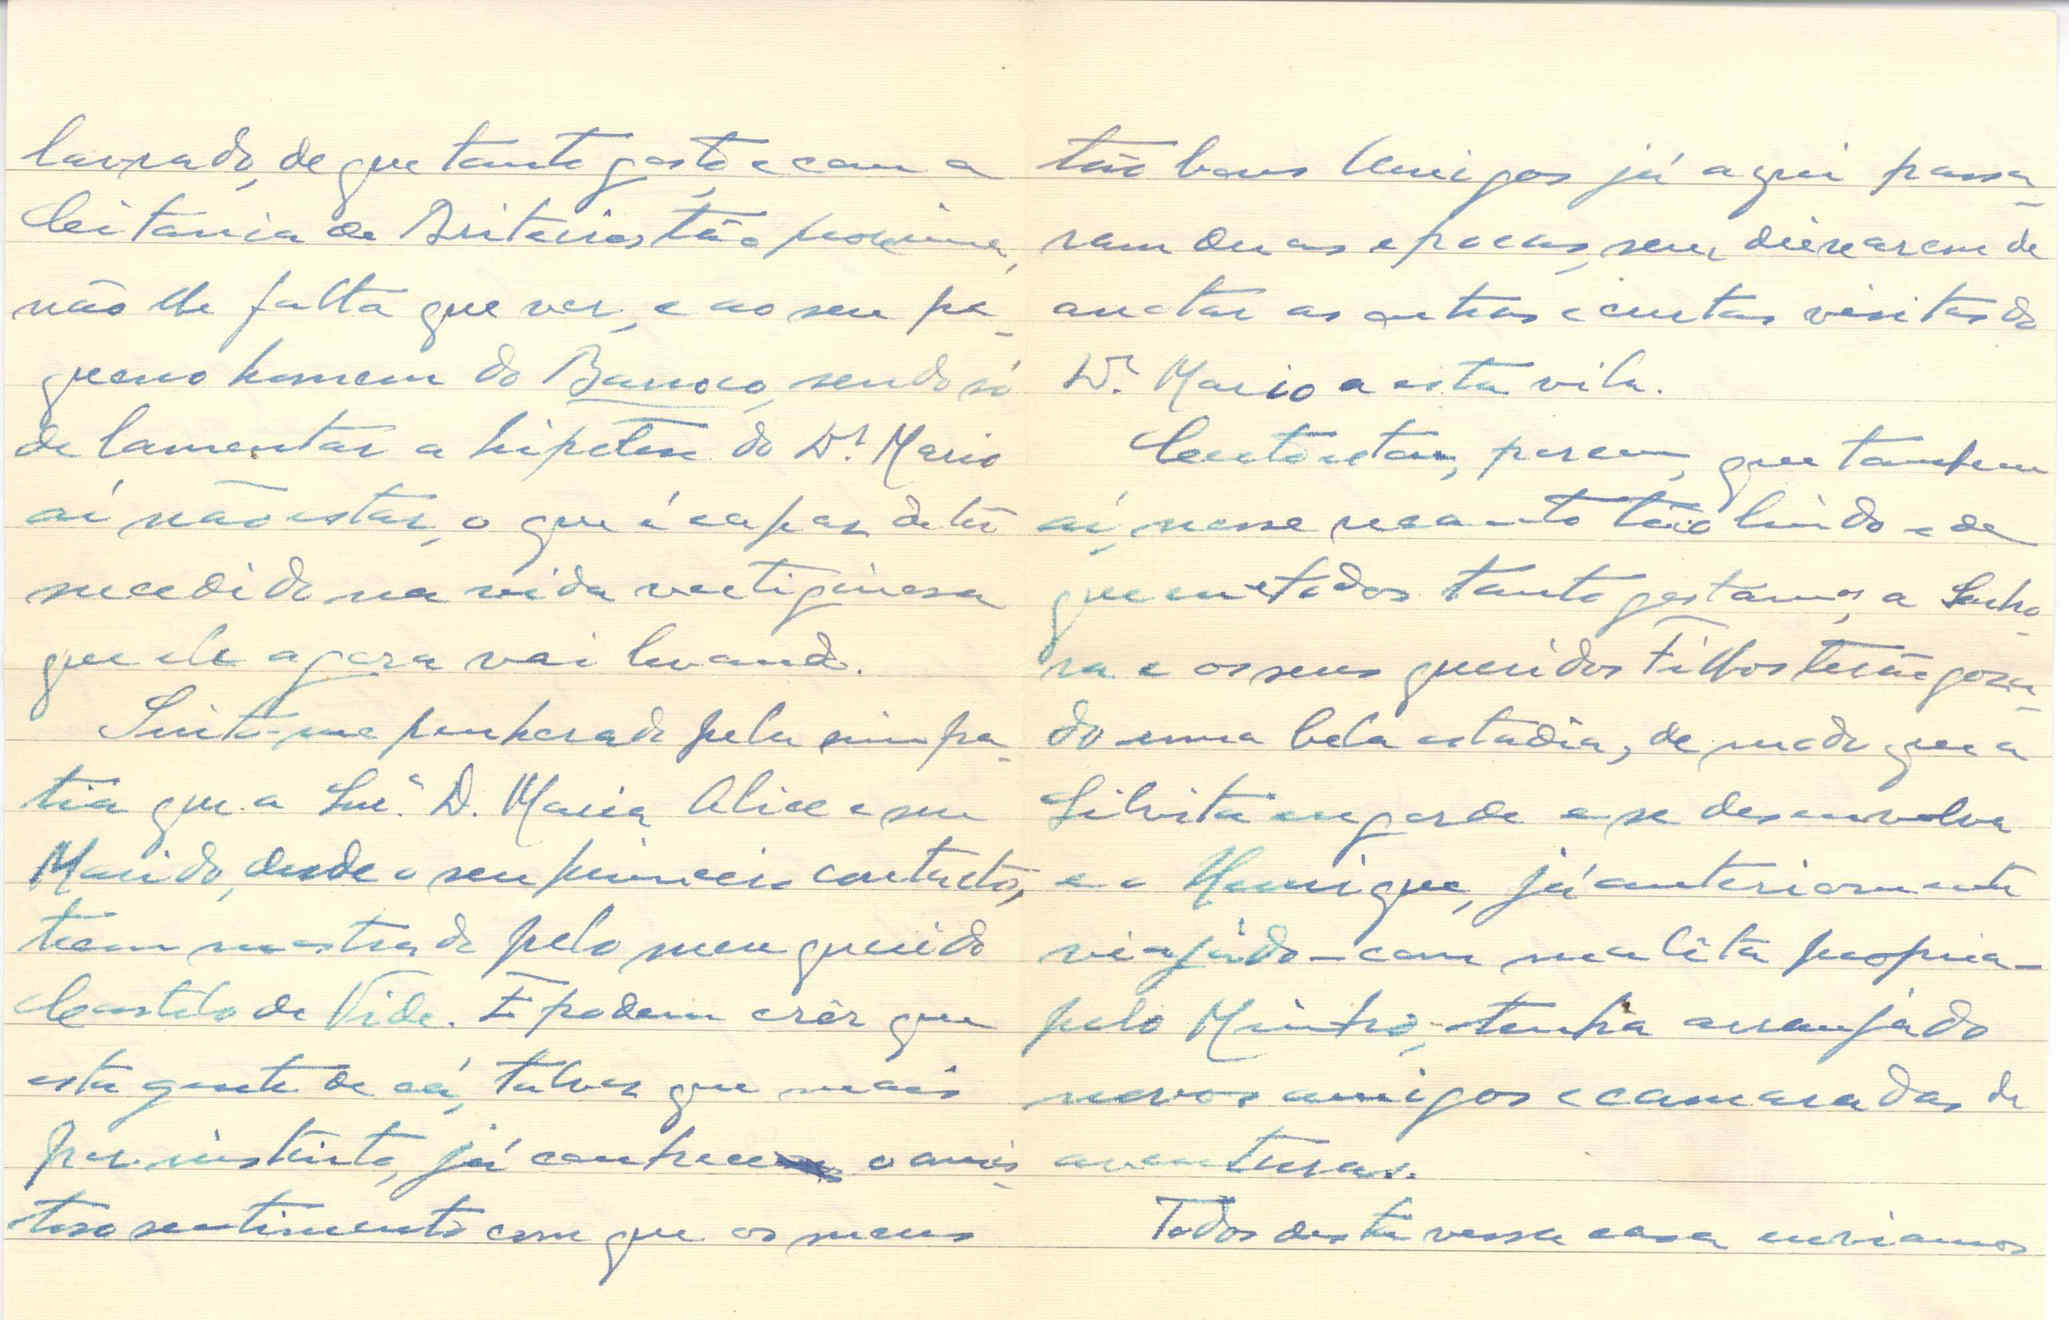 lavrado, de que tanto gosto e com a
Citania de Briteiros tão proxima,
não lhe falta que ver, e ao seu pe-
queno homem do Barroco, sendo só
de lamentar a hipotese do Dr. Mario
aí não estar, o que é capaz de ter
sucedido na vida vertiginosa
que ele agora vai levando.
Sinto-me penhorado pela simpa-
tia que a Snr.ª D. Maria Alice e seu
Marido, desde o seu primeiro contacto,
teem mostrado pelo meu querido
Castelo de Vide. E podem crêr que
esta gente de cá, talvez que mais
por instinto, já conhece o amis-
toso sentimento com que os meus
tão bons Amigos já aqui passa-
ram duas epocas, sem deixarem de
anotar as outras e curtas visitas do
Dr. Mario a esta vila.
porem, que tambem
aí, nesse recanto tão lindo e de
que todos tanto gostamos, a Senho-
ra e os seus queridos Filhos terão goza-
do uma bela estadia, de modo que a
Silvita engorde e se desenvolva
e o Henrique, já anteriormente
viajado - com malita propria -
pelo Minho, tenha arranjado
novos amigos e camaradas de
aventuras.
Todos desta vossa casa enviamos